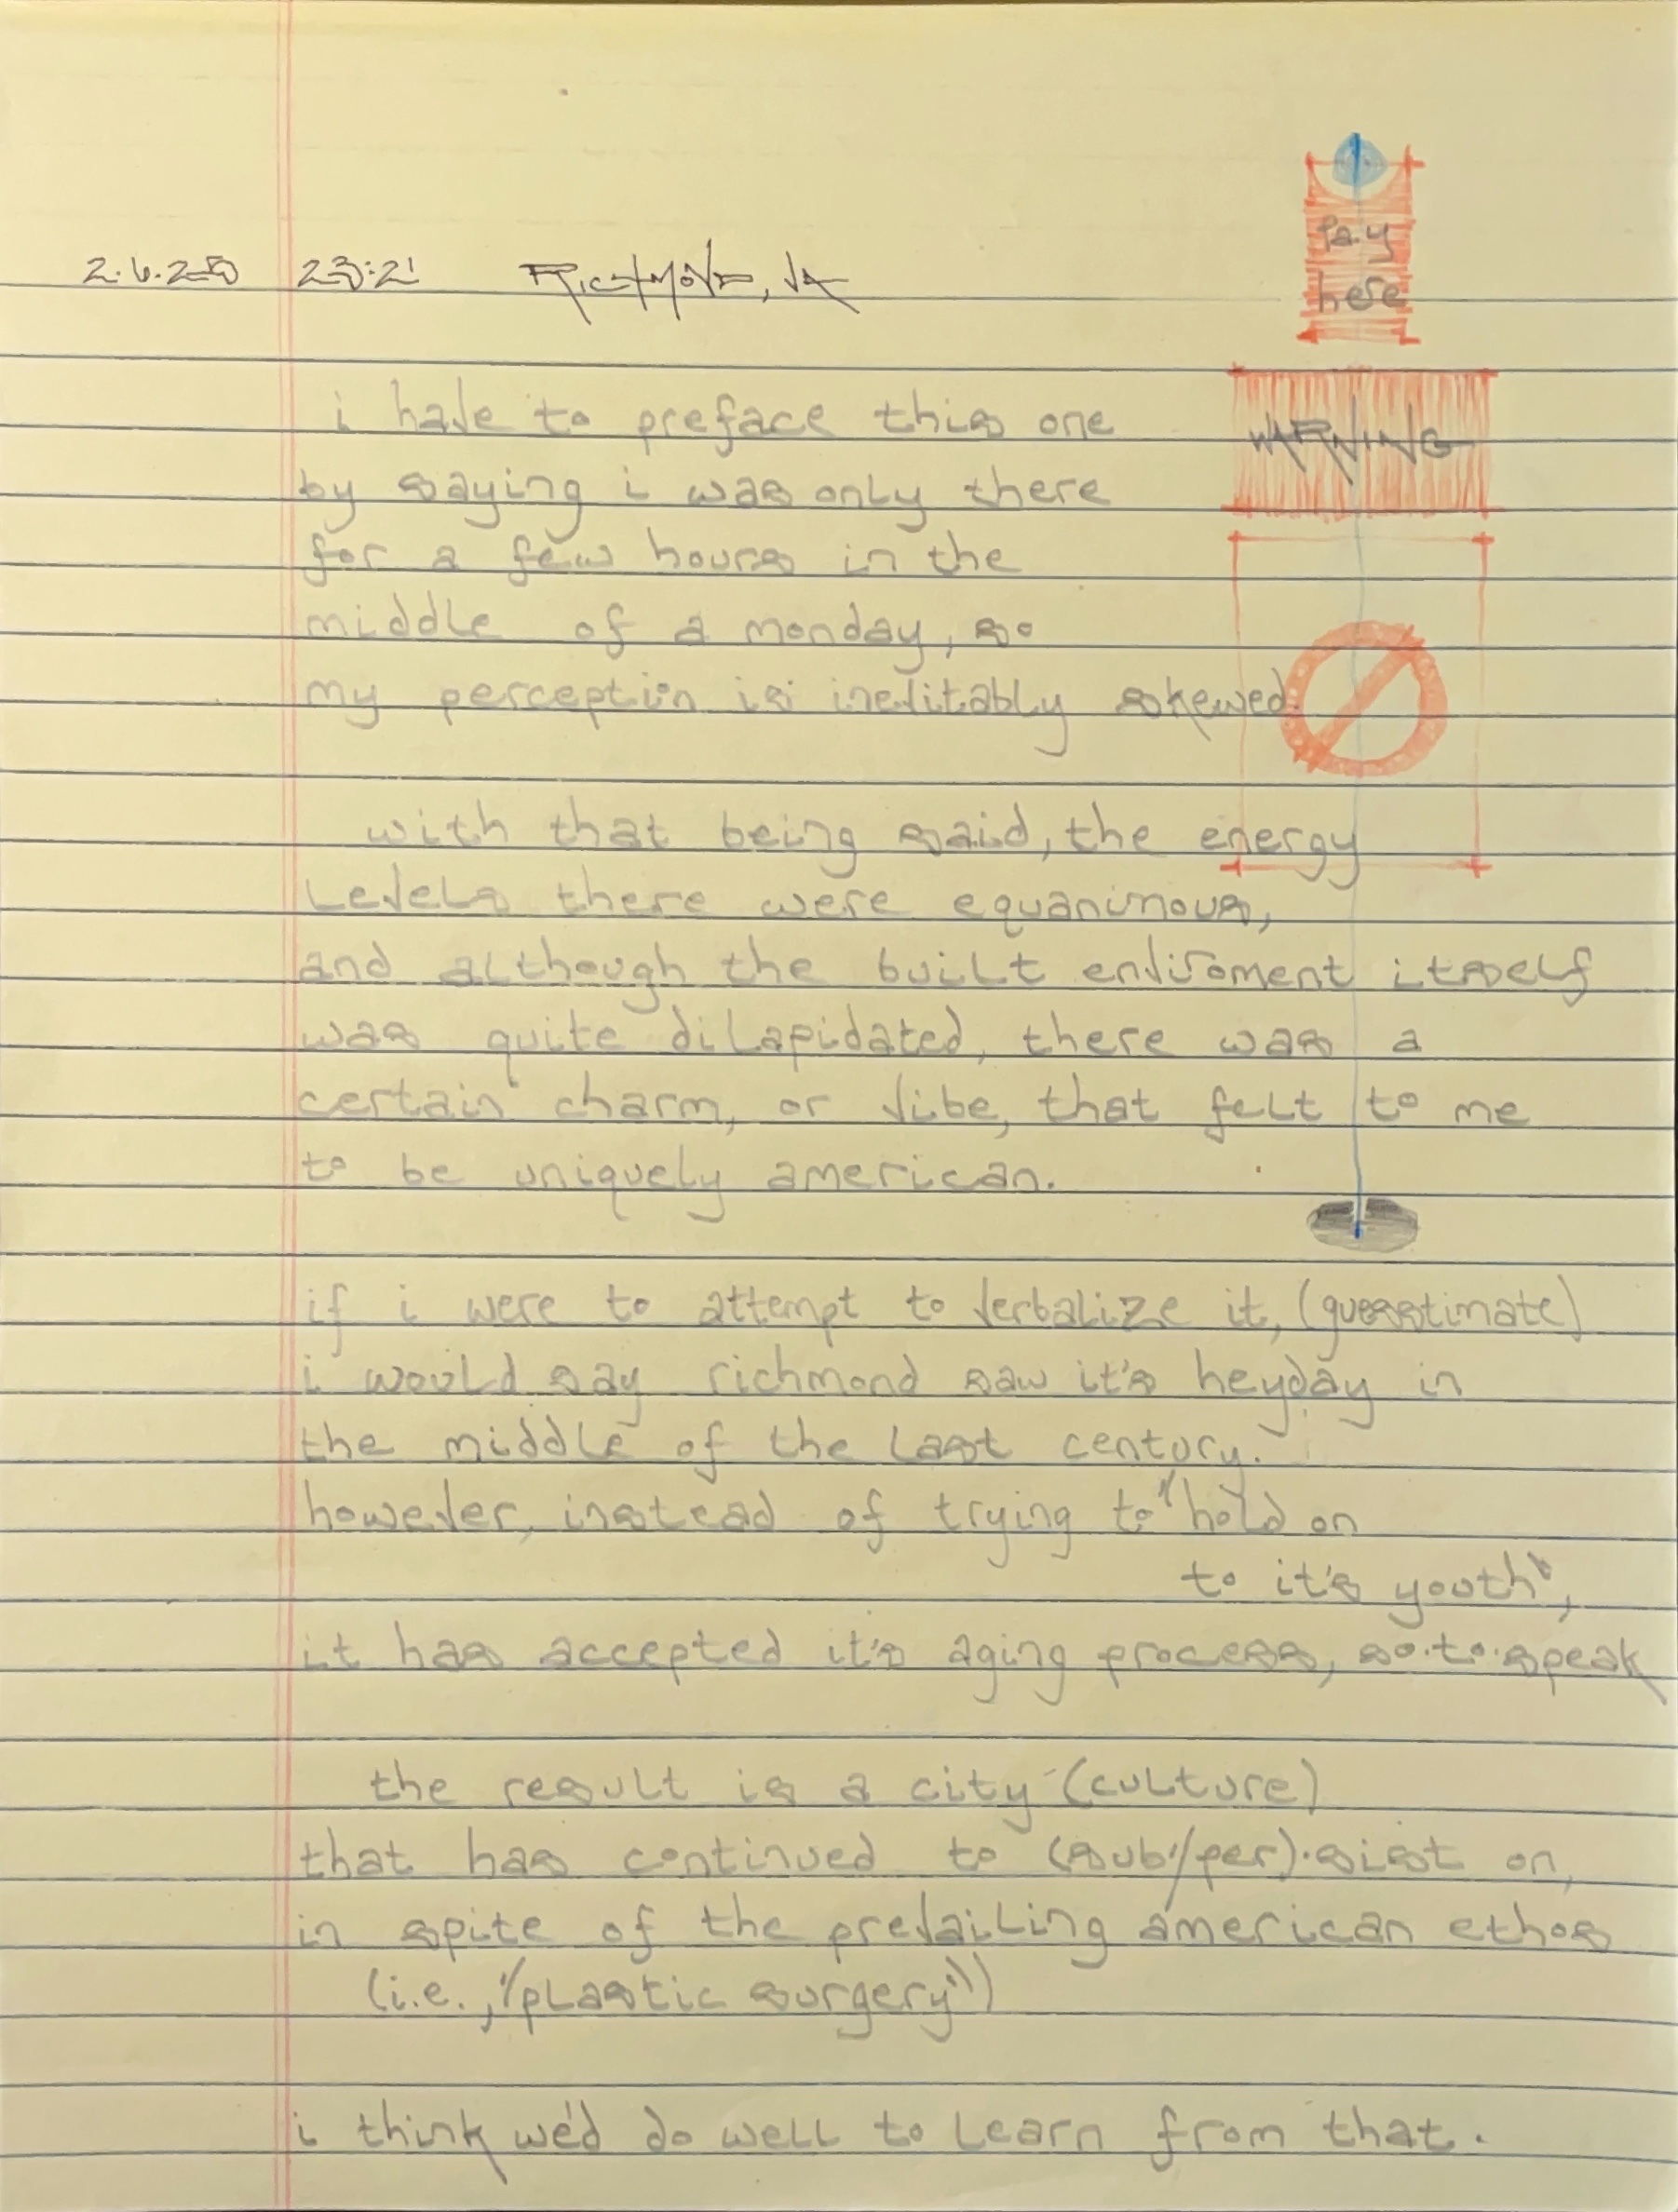 2.6.25 23:21 RICHMOND, VA
pay
here
WARNING
i have to preface this one
by saying i was only there
for a few hours in the
middle of a monday, so
my perception is inevitably skewed.
with that being said, the energy
levels there were equanimous,
and although the built enviroment itself
was quite dilapidated, there was a
certain charm, or vibe, that felt to me
to be uniquely american.
if i were to attempt to verbalize it, (guesstimate)
i would say richmond saw it's heyday in
the middle of the last century.
however, instead of trying to "hold on
to it's youth",
it has accepted it's aging process, so·to·speak
the result is a city (culture)
that has continued to (sub/per)·sist on,
in spite of the prevailing american ethos
(i.e., "plastic surgery")
i think we'd do well to learn from that.